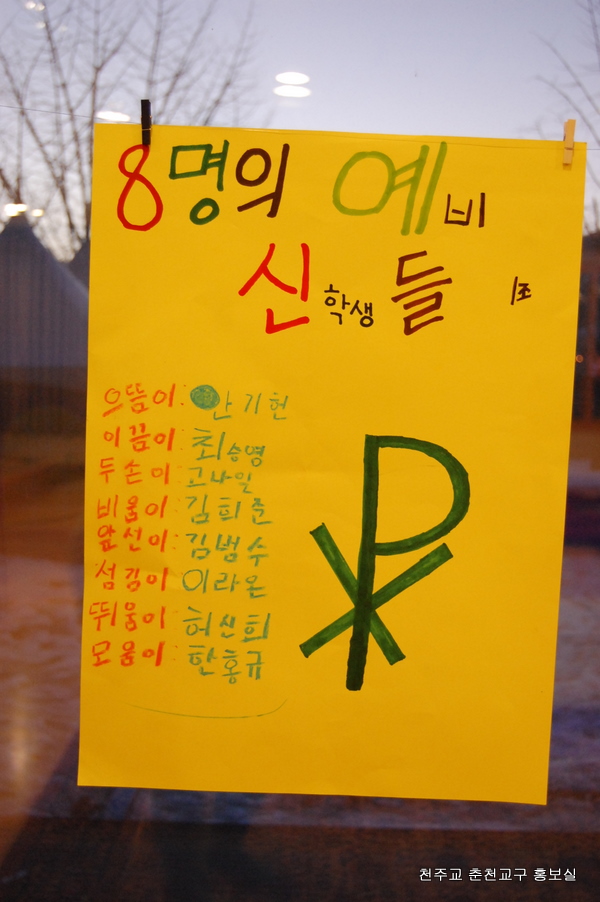 8명의 예비
신학생들 1조
으뜸이: 안기헌
이끔이: 최승영
두손이: 고나일
비움이: 김희준
앞선이: 김범수
섬김이: 이라온
뛰움이: 허신희
모움이: 한홍규
천주교 춘천교구 홍보실